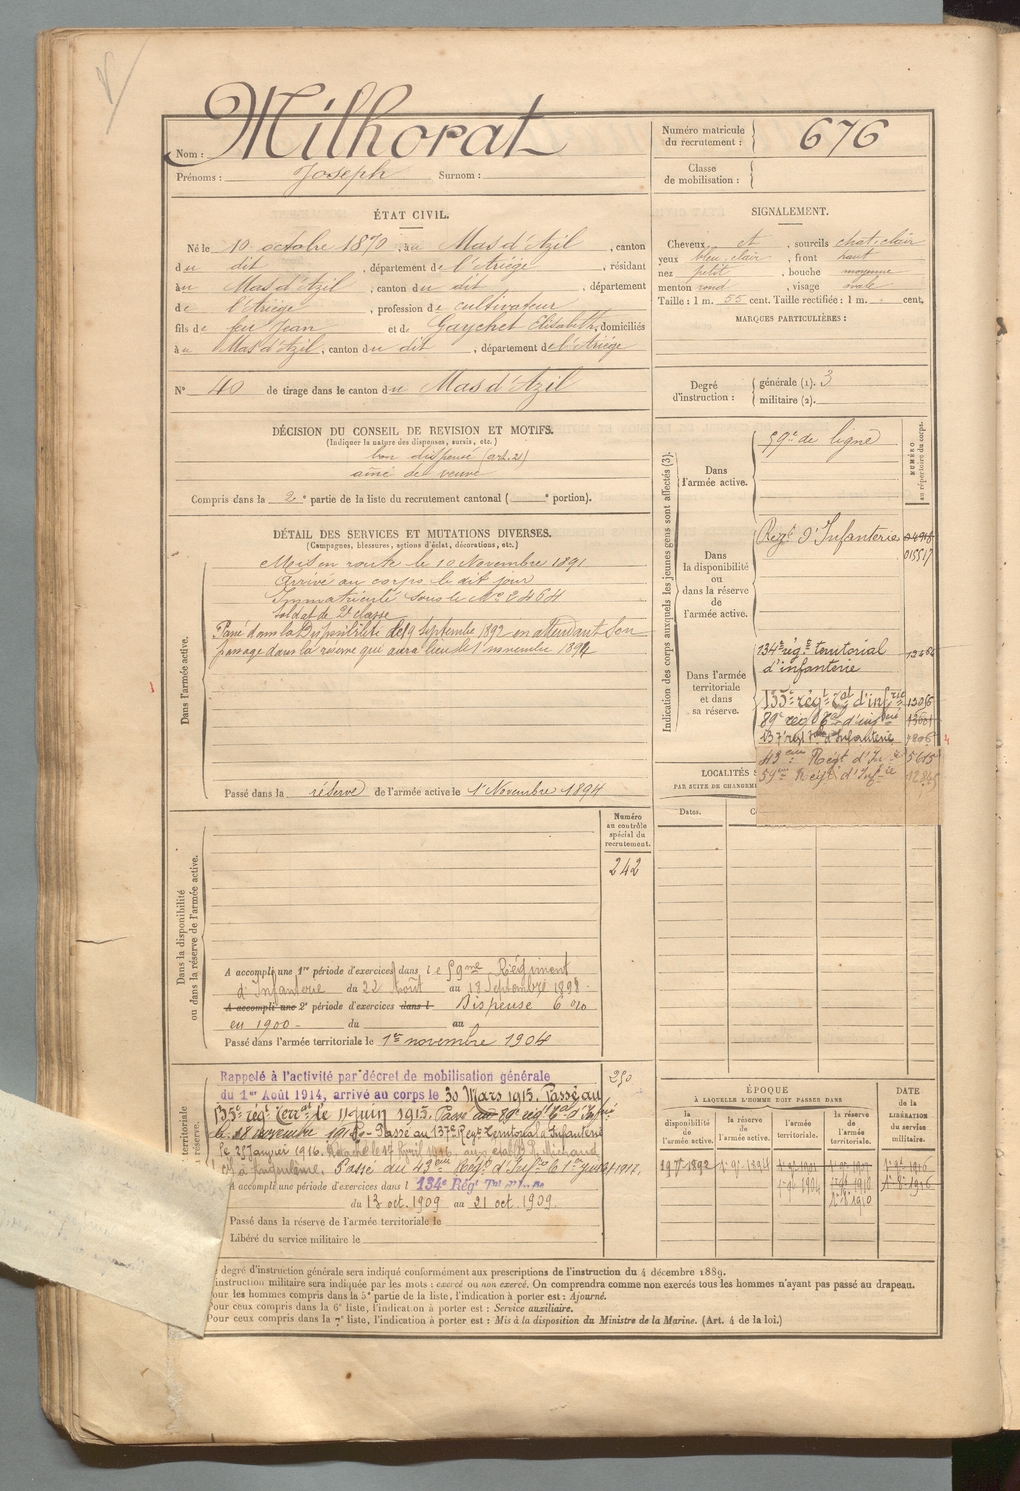 Nom : Milhorat
Prénoms : Joseph Surnom :
Numéro matricule du recrutement : 676
Classe de mobilisation :
ÉTAT CIVIL.
Né le 10 octobre 1870, à u Mas d'Azil, canton
d u dit, département de l'Ariège, résidant
à u Mas d'Azil, canton d u dit, département
de l'Ariège, profession de cultivateur
fils de feu Jean et de Gaychet Elisabeth, domiciliés
à u Mas d'Azil, canton d u dit, département de l'Ariège
N° 40 de tirage dans le canton d u Mas d'Azil
SIGNALEMENT.
Cheveux et, sourcils chat. clair
yeux bleu clair, front haut
nez petit, bouche moyenne
menton rond, visage ovale
Taille : 1 m. 55 cent. Taille rectifiée : 1 m. cent.
MARQUES PARTICULIÈRES :
Degré d'instruction : générale (1). 3
militaire (2).
DÉCISION DU CONSEIL DE REVISION ET MOTIFS.
(Indiquer la nature des dispenses, sursis, etc.)
bon dispensé (art. 21)
aîné de veuve
Compris dans la 2e partie de la liste du recrutement cantonal ( e portion).
DÉTAIL DES SERVICES ET MUTATIONS DIVERSES.
(Campagnes, blessures, actions d'éclat, décorations, etc.)
Dans l'armée active.
Mis en route le 10 Novembre 1891
Arrivé au corps le dit jour
Immatriculé sous le No 2464
Soldat de 2e classe
Passé dans la Disponibilité le 19 Septembre 1892 en attendant son
passage dans la réserve qui aura lieu le 1er novembre 1894
Passé dans la réserve de l'armée active le 1er Novembre 1894
Indication des corps auxquels les jeunes gens sont affectés (3).
NUMÉRO au répertoire du corps.
Dans l'armée active.
59e de ligne
Dans la disponibilité ou dans la réserve de l'armée active.
Regt d'Infanterie
015517
Dans l'armée territoriale et dans sa réserve.
134e régt territorial
d'infanterie
135e régt tal d'infrie 13056
89e régt tal d'infrie 13601
137e régt tal d'Infanterie
49eme Régt d'Infie 5615
59eme Régt d'Infie 12845
LOCALITÉS
PAR SUITE DE CHANGEM
Dates.
Dans la disponibilité ou dans la réserve de l'armée active.
Numéro au contrôle spécial du recrutement.
242
A accompli une 1re période d'exercices dans l e 59me Régiment
d'Infanterie du 22 Août au 18 Septembre 1898.
A accompli une 2e période d'exercices dans l Dispensé 6 0/0
en 1900 - du au
Passé dans l'armée territoriale le 1er novembre 1904
territoriale
réserve.
250
Rappelé à l'activité par décret de mobilisation générale
du 1er Août 1914, arrivé au corps le 30 Mars 1915. Passé au
135e régt Terral le 11 juin 1915. Passé au 89e régt tal d'Infrie
le 18 novembre 191 Passé au 137e Regt territorial d'Infanterie
le 25 Janvier 1916.
Passé au 49eme Régt d'Infie le 1er 1917.
A accompli une période d'exercices dans l 134e Régt Tal
du 13 oct. 1909 au 21 oct. 1909
Passé dans la réserve de l'armée territoriale le
Libéré du service militaire le
ÉPOQUE
À LAQUELLE L'HOMME DOIT PASSER DANS
DATE de la LIBÉRATION du service militaire.
la disponibilité de l'armée active.
la réserve de l'armée active.
l'armée territoriale.
la réserve de l'armée territoriale.
19 7bre 1892
1er 9bre 1894
1er 9bre 1904
1er 9bre 1910
1er 8bre 1910
1er 9bre 1916
1er 8bre 1916
degré d'instruction générale sera indiqué conformément aux prescriptions de l'instruction du 4 décembre 1889.
instruction militaire sera indiquée par les mots : exercé ou non exercé. On comprendra comme non exercés tous les hommes n'ayant pas passé au drapeau.
Pour les hommes compris dans la 5e partie de la liste, l'indication à porter est : Ajourné.
Pour ceux compris dans la 6e liste, l'indication à porter est : Service auxiliaire.
Pour ceux compris dans la 7e liste, l'indication à porter est : Mis à la disposition du Ministre de la Marine. (Art. 4 de la loi.)